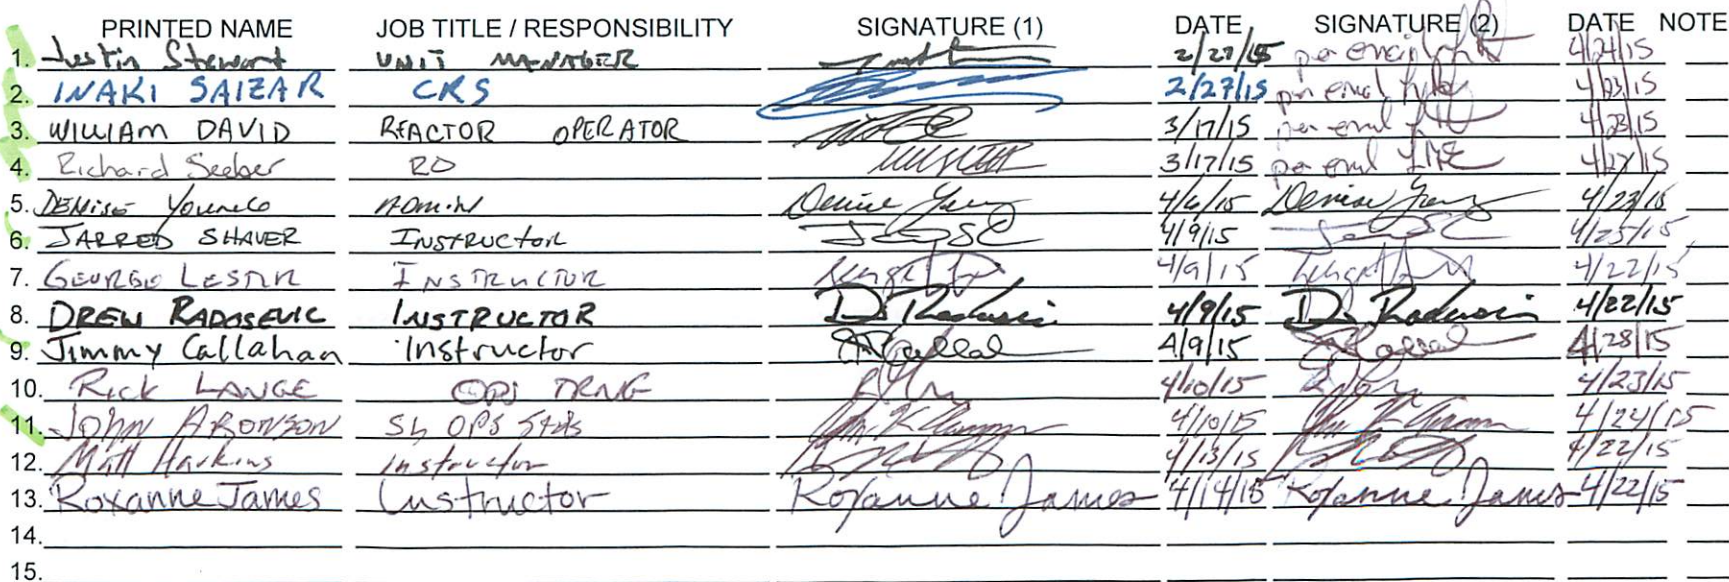 PRINTED NAME JOB TITLE / RESPONSIBILITY SIGNATURE (1) DATE SIGNATURE (2) DATE NOTE
1. Justin Stewart UNIT MANAGER 2/27/15 per email 4/24/15
2. INAKI SAIZAR CRS 2/27/15 per email 4/23/15
3. WILLIAM DAVID REACTOR OPERATOR 3/17/15 per email 4/23/15
4. Richard Seeber RO 3/17/15 per email 4/27/15
5. DENISE ADMIN Denise 4/6/15 Denise 4/23/15
6. JARRED SHAVER INSTRUCTOR 4/9/15 4/25/15
7. INSTRUCTOR 4/9/15 4/22/15
8. DREW RADOSEVIC INSTRUCTOR D. 4/9/15 D. 4/22/15
9. Jimmy Callahan Instructor 4/9/15 4/28/15
10. RICK LANGE OPS TRNG 4/10/15 4/23/15
11. JOHN ARONSON OPS 4/10/15 4/24/15
12. Matt Harkins instructor 4/13/15 4/22/15
13. Roxanne James Instructor Roxanne James 4/14/15 Roxanne James 4/22/15
14.
15.